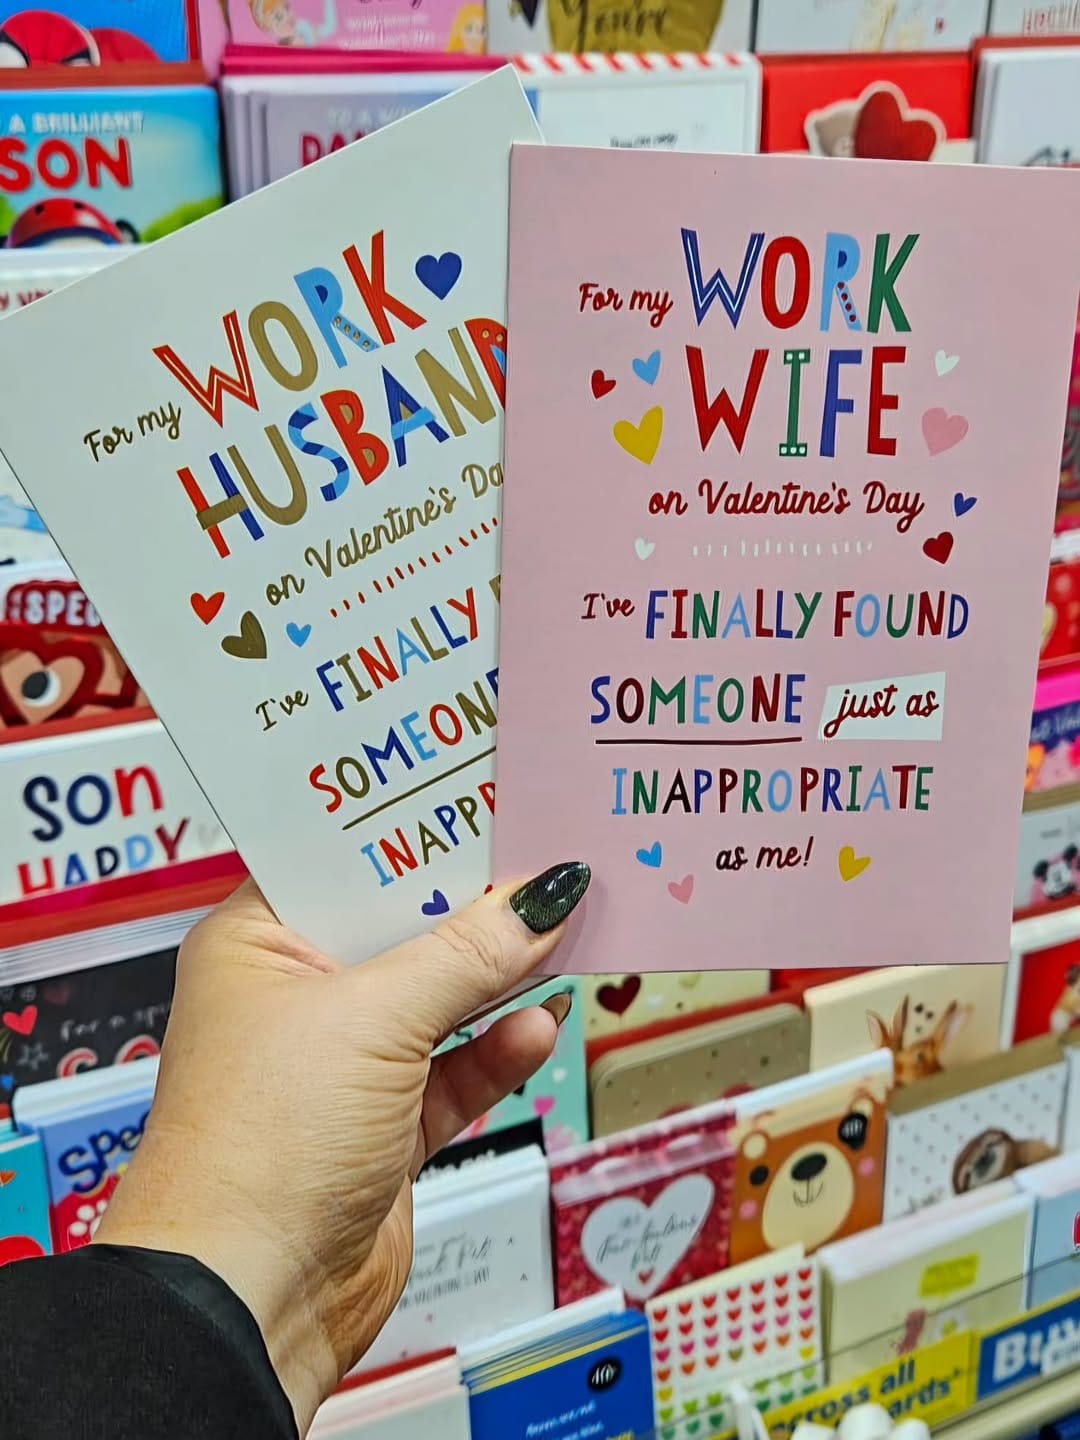 You're
A BRILLIANT
SON
For my WORK
HUSBAND
on Valentine's Da
I've FINALLY
SOMEONE
INAPP
For my WORK
WIFE
on Valentine's Day
I've FINALLY FOUND
SOMEONE just as
INAPPROPRIATE
as me!
SON
HAPPY
for a
across all